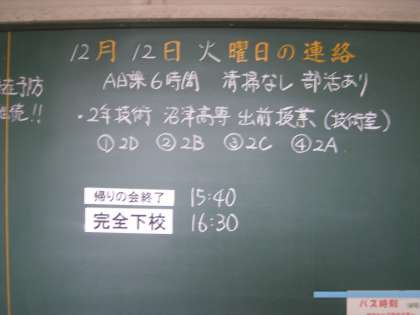 12月 12日 火曜日の連絡
A日課6時間 清掃なし 部活あり
予防
!!
・2年技術 沼津高専 出前授業(技術室)
①2D ②2B ③2C ④2A
帰りの会終了 15:40
完全下校 16:30
バス時刻